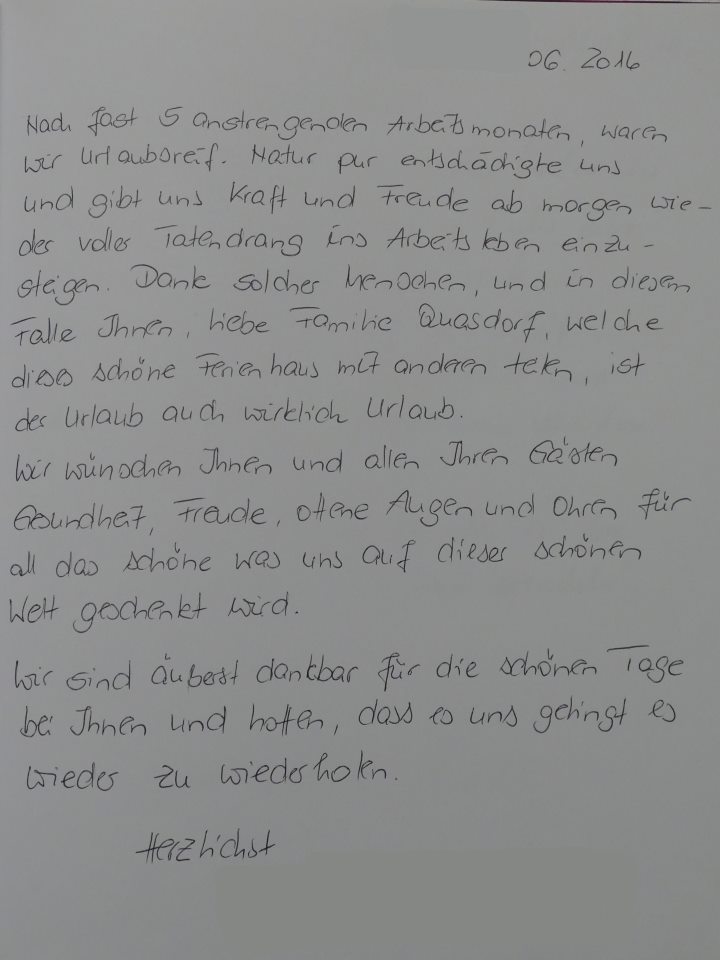 06. 2016
Nach fast 5 anstrengenden Arbeitsmonaten, waren
wir Urlaubsreif. Natur pur entschädigte uns
und gibt uns Kraft und Freude ab morgen wie-
der voller Tatendrang ins Arbeitsleben einzu-
steigen. Dank solcher Menschen, und in diesem
Falle Ihnen, liebe Familie Quasdorf, welche
dieses schöne Ferienhaus mit anderen teilen, ist
der Urlaub auch wirklich Urlaub.
Wir wünschen Ihnen und allen Ihren Gästen
Gesundheit, Freude, offene Augen und Ohren für
all das schöne was uns auf dieser schönen
Welt geschenkt wird.
Wir sind äußerst dankbar für die schönen Tage
bei Ihnen und hoffen, dass es uns gelingt es
wieder zu wiederholen.
Herzlichst